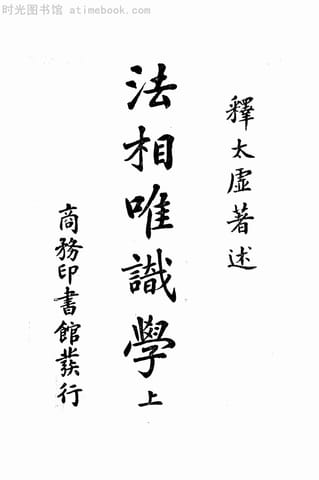 时光图书馆 atimebook.com
釋太虛著述
法相唯識學上
商務印書館發行